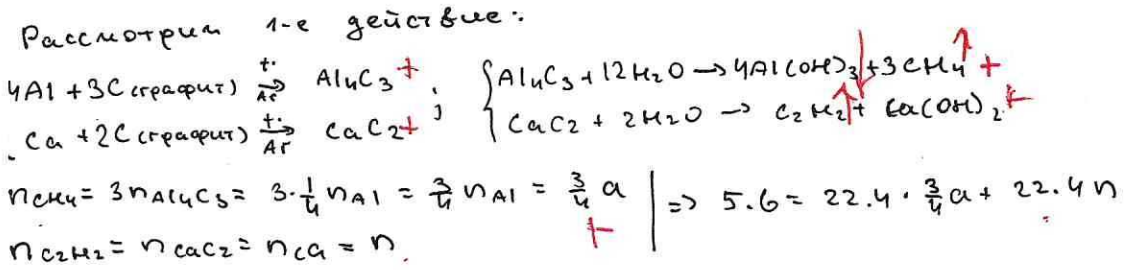 Рассмотрим 1-е действие:
4Al + 3C (графит) t. → Ar Al4C3 + ; { Al4C3 + 12H2O → 4Al(OH)3↓ + 3CH4↑ +
Ca + 2C (графит) t. → Ar CaC2 + CaC2 + 2H2O → C2H2↑ + Ca(OH)2 +
nCH4 = 3nAl4C3 = 3·1/4 nAl = 3/4 nAl = 3/4 a + | => 5.6 = 22.4 · 3/4 a + 22.4 n
nC2H2 = nCaC2 = nCa = n.